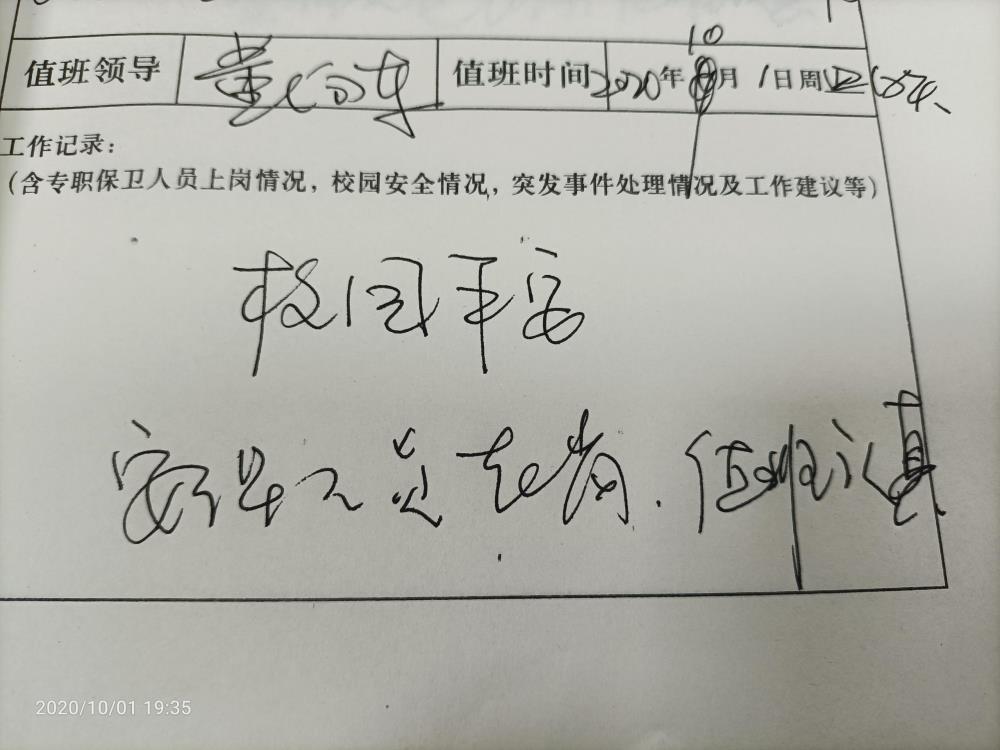 值班领导 董 值班时间 2020年10月1日周四
工作记录：
（含专职保卫人员上岗情况，校园安全情况，突发事件处理情况及工作建议等）
校园平安
安保人员在岗.值班认真
2020/10/01 19:35